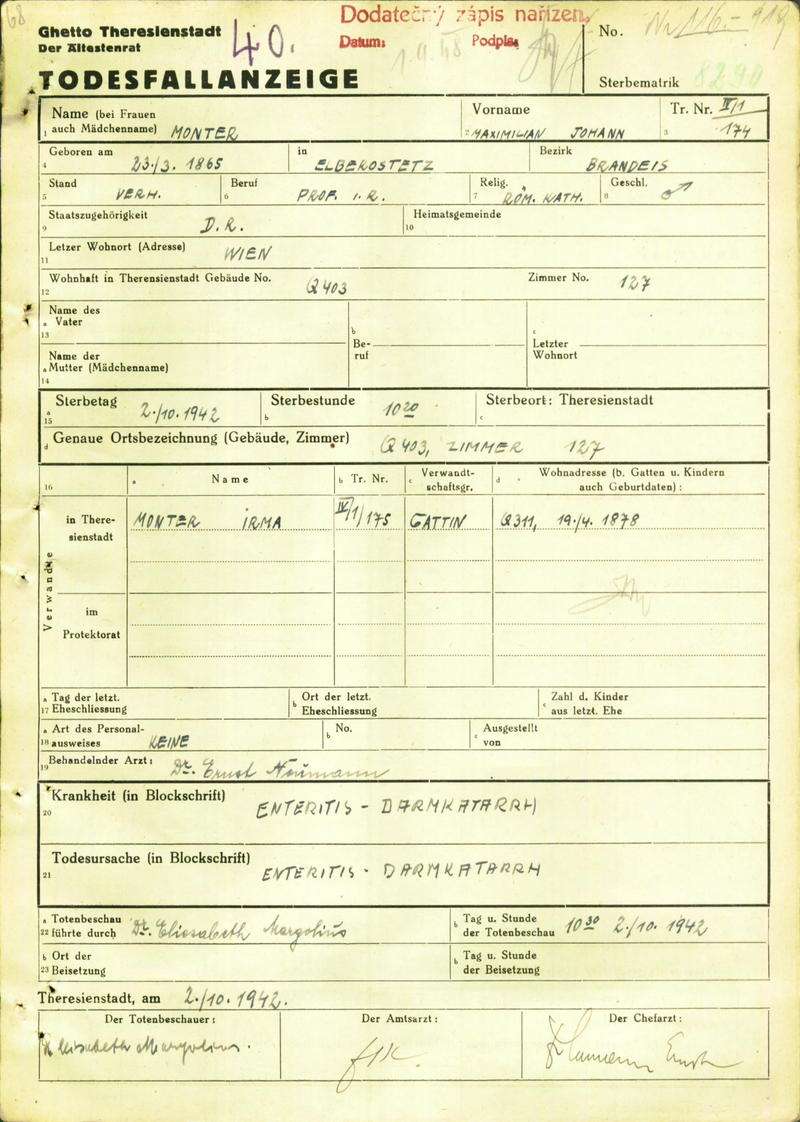 68
Ghetto Theresienstadt
Der Ältestenrat
TODESFALLANZEIGE
40.
Dodatečný zápis nařízen.
Datum: Podpis:
No.
Sterbematrik 8290
Name (bei Frauen
1 auch Mädchenname) MONTER
Vorname
2 MAXIMILIAN JOHANN
Tr. Nr. IV/1
3 174
Geboren am
4 23./3. 1865
in
ELBEKOSTETZ
Bezirk
BRANDEIS
Stand
5 VERH.
Beruf
6 PROF. I. R.
Relig.
7 RÖM. KATH.
Geschl.
8 ♂
Staatszugehörigkeit
9 D.R.
Heimatsgemeinde
10
Letzer Wohnort (Adresse)
11 WIEN
Wohnhaft in Theresienstadt Gebäude No. Q 403 Zimmer No. 127
12
Name des
a Vater
13
b
Be-
ruf
c
Letzter
Wohnort
Name der
a Mutter (Mädchenname)
14
Sterbetag
a
15 2./10. 1942
Sterbestunde
b 10 20
Sterbeort: Theresienstadt
c
d Genaue Ortsbezeichnung (Gebäude, Zimmer) Q 403, ZIMMER 127
16
a Name
b Tr. Nr.
c Verwandt-
schaftsgr.
d Wohnadresse (b. Gatten u. Kindern
auch Geburtdaten):
Verwandte
in There-
sienstadt
MONTER IRMA IV/1/175 GATTIN Q311, 19./4. 1878
im
Protektorat
a Tag der letzt.
17 Eheschliessung
b Ort der letzt.
Eheschliessung
c Zahl d. Kinder
aus letzt. Ehe
a Art des Personal-
18 ausweises KEINE
b No.
c Ausgestellt
von
Behandelnder Arzt: Dr. Ernst Neumann
19
Krankheit (in Blockschrift)
20 ENTERITIS - DARMKATARRH
Todesursache (in Blockschrift)
21 ENTERITIS - DARMKATARRH
a Totenbeschau
22 führte durch Dr. Eliesabeth Margolius
b Tag u. Stunde
der Totenbeschau 10 30 2./10. 1942
b Ort der
23 Beisetzung
b Tag u. Stunde
der Beisetzung
Theresienstadt, am 2./10. 1942.
Der Totenbeschauer:
Der Amtsarzt:
Der Chefarzt:
Elisabeth Margolius.